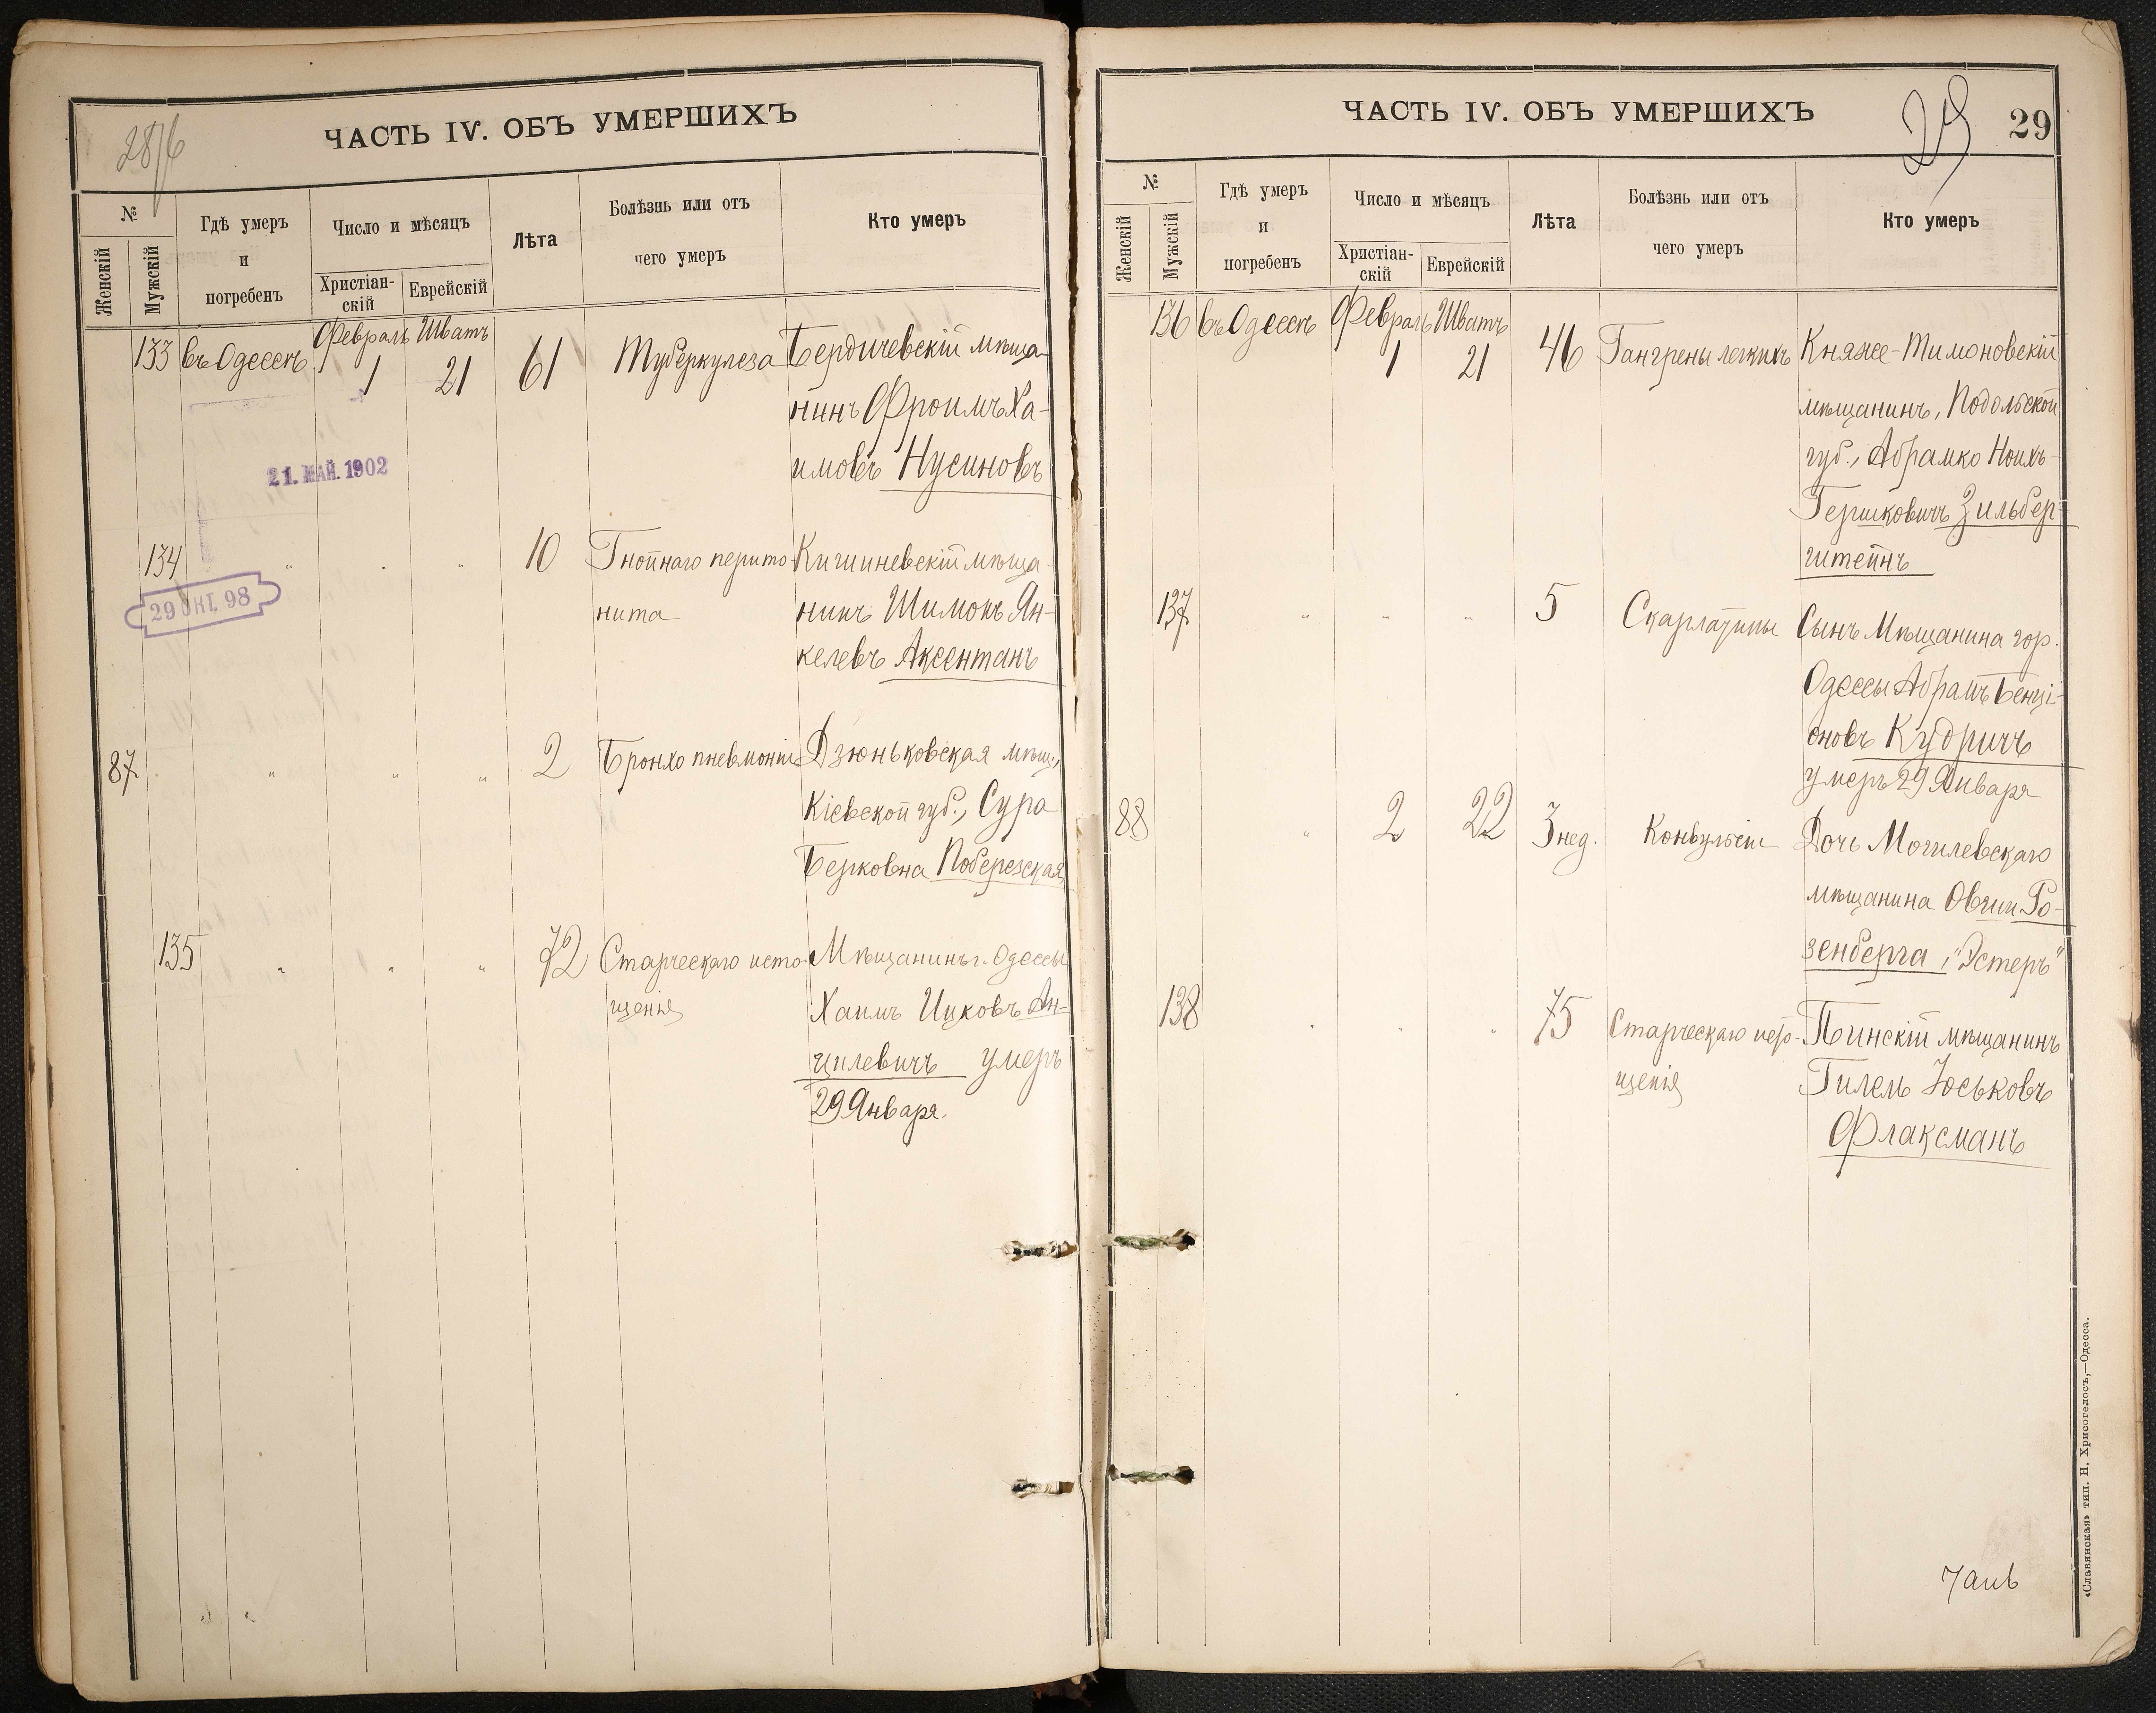 28/б
ЧАСТЬ IV. ОБЪ УМЕРШИХЪ
№
Женскій
Мужскій
Гдѣ умеръ
и
погребенъ
Число и мѣсяцъ
Христіан-
скій
Еврейскій
Лѣта
Болѣзнь или отъ
чего умеръ
Кто умеръ
133 въ Одессѣ Февраль 1 Шватъ 21 61 Туберкулеза Бердичевскій мѣща-
нинъ Фроимъ Ха-
имовъ Нусиновъ
21. МАЙ. 1902
134 " " " 10 Гнойнаго перито- Кишиневскій мѣща-
нита нинъ Шимонъ Ян-
келевъ Аксентанъ
29 ОКТ. 98
87 " " " 2 Бронхо пневмоніи Дзюньковская мѣщ.,
Кіевской губ., Сура
Берковна Поберезская
135 " " " 72 Старческаго исто- Мѣщанинъ г. Одессы
щенія Хаимъ Ицковъ Ан-
цилевичъ умеръ
29 Января.
ЧАСТЬ IV. ОБЪ УМЕРШИХЪ
29
29
№
Женскій
Мужскій
Гдѣ умеръ
и
погребенъ
Число и мѣсяцъ
Христіан-
скій
Еврейскій
Лѣта
Болѣзнь или отъ
чего умеръ
Кто умеръ
136 въ Одессѣ Февраль 1 Шватъ 21 46 Гангрены легкихъ Княже-Тимоновскій
мѣщанинъ, Подольской
губ., АбрамкоНоихъ-
Гершковичъ Зильбер-
штейнъ
137 " " " 5 Скарлатины Сынъ Мѣщанина гор.
Одессы Абрамъ Бенці-
оновъ Кудричъ
умеръ 29 Января
88 " 2 22 3 нед. Конвульсіи Дочь Могилевскаго
мѣщанина Овши Ро-
зенберга, "Эстеръ"
138 " " " 75 Старческаго исто- Пинскій мѣщанинъ
щенія Гилель Юськовъ
Флаксманъ
«Славянская» тип. Н. Хрисогелосъ,—Одесса.